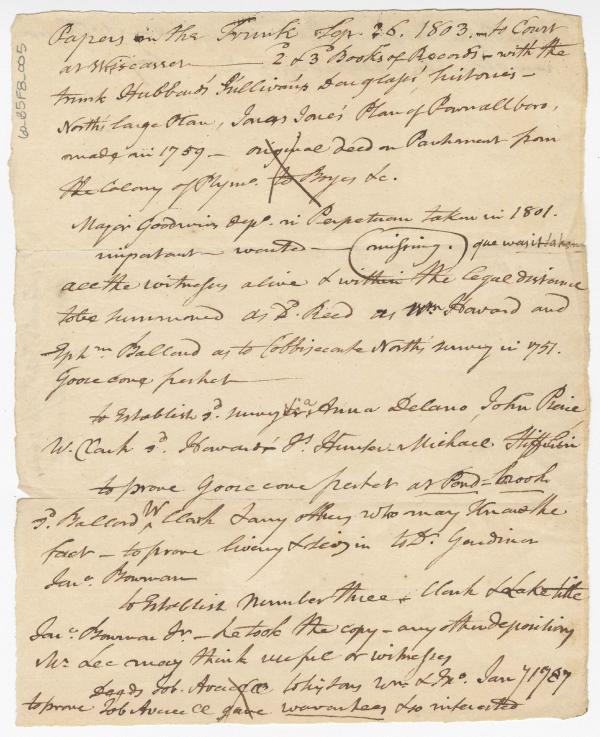 Papers in the Trunk Sep. 26. 1803. — to Court
at Wiscasset — 2 & 3d Books of Records — with the
trunk Hubbards Sullivans Douglass' histories —
North's large Plan, Jonas Jone's Plan of Pownallboro,
made in 1759 — original deed on Parchment from
the Colony of Plymo. to Boyes &c.
Major Goodwins depo. in Perpetuam taken in 1801.
important — wanted — (missing.) que was it taken
all the witnesses alive & within the legal distance
to be summoned as Reed as Wm Howard and
Ephm Ballard as to Cobbisecate North's survey in 1751.
Goose cove perhet
to Establish sd. survey Anna Delano, John
W. Clark sd. Howard Js. Hunter Michael
to prove Goose cove perhet at Pond-brook
sd. Ballard W Clark & any others who may Know the
fact — to prove livery & seizin to Dr. Gardiner
Jona. Bowman
to Establish Number three — Clark & Lake title
Jona. Bowman Jr. — he took the copy — any other depositions
Mr. Lee may think useful or witnesses
Deeds Job. Averell to his sons Wm. & Jno. Jany 1787
to prove Job Averell gave warrantees & so interested
60-85FB.005